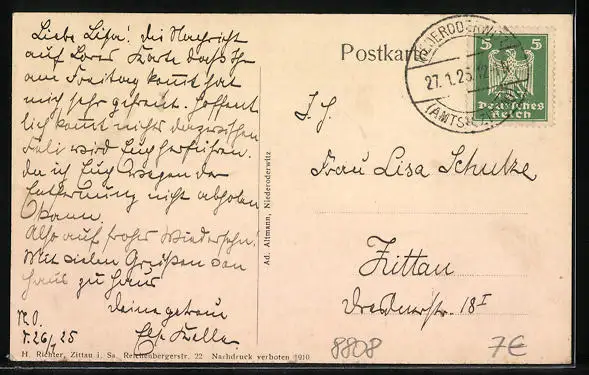 Liebe Lisa! die Nachricht
auf Karte daß Ihr
am Freitag kommt hat
mich sehr gefreut. Hoffent
lich kommt nichts dazwischen
wird Euch
da ich Euch wegen der
Entfernung nicht abholen
kann.
Also auf frohes Wiedersehn!
Mit vielen Grüßen von
Haus zu Haus
Deine getreue
N.O.
26/1 25
H. Richter, Zittau i. Sa. Reichenbergerstr. 22 Nachdruck verboten 1910
Ad. Altmann, Niederoderwitz
Postkarte
NIEDERODERWITZ
27.1.25.12
(AMTSH.
5 5
Deutsches
Reich
Frau Lisa Schulze
Zittau
Dresdenerstr. 18 I
8808
7€